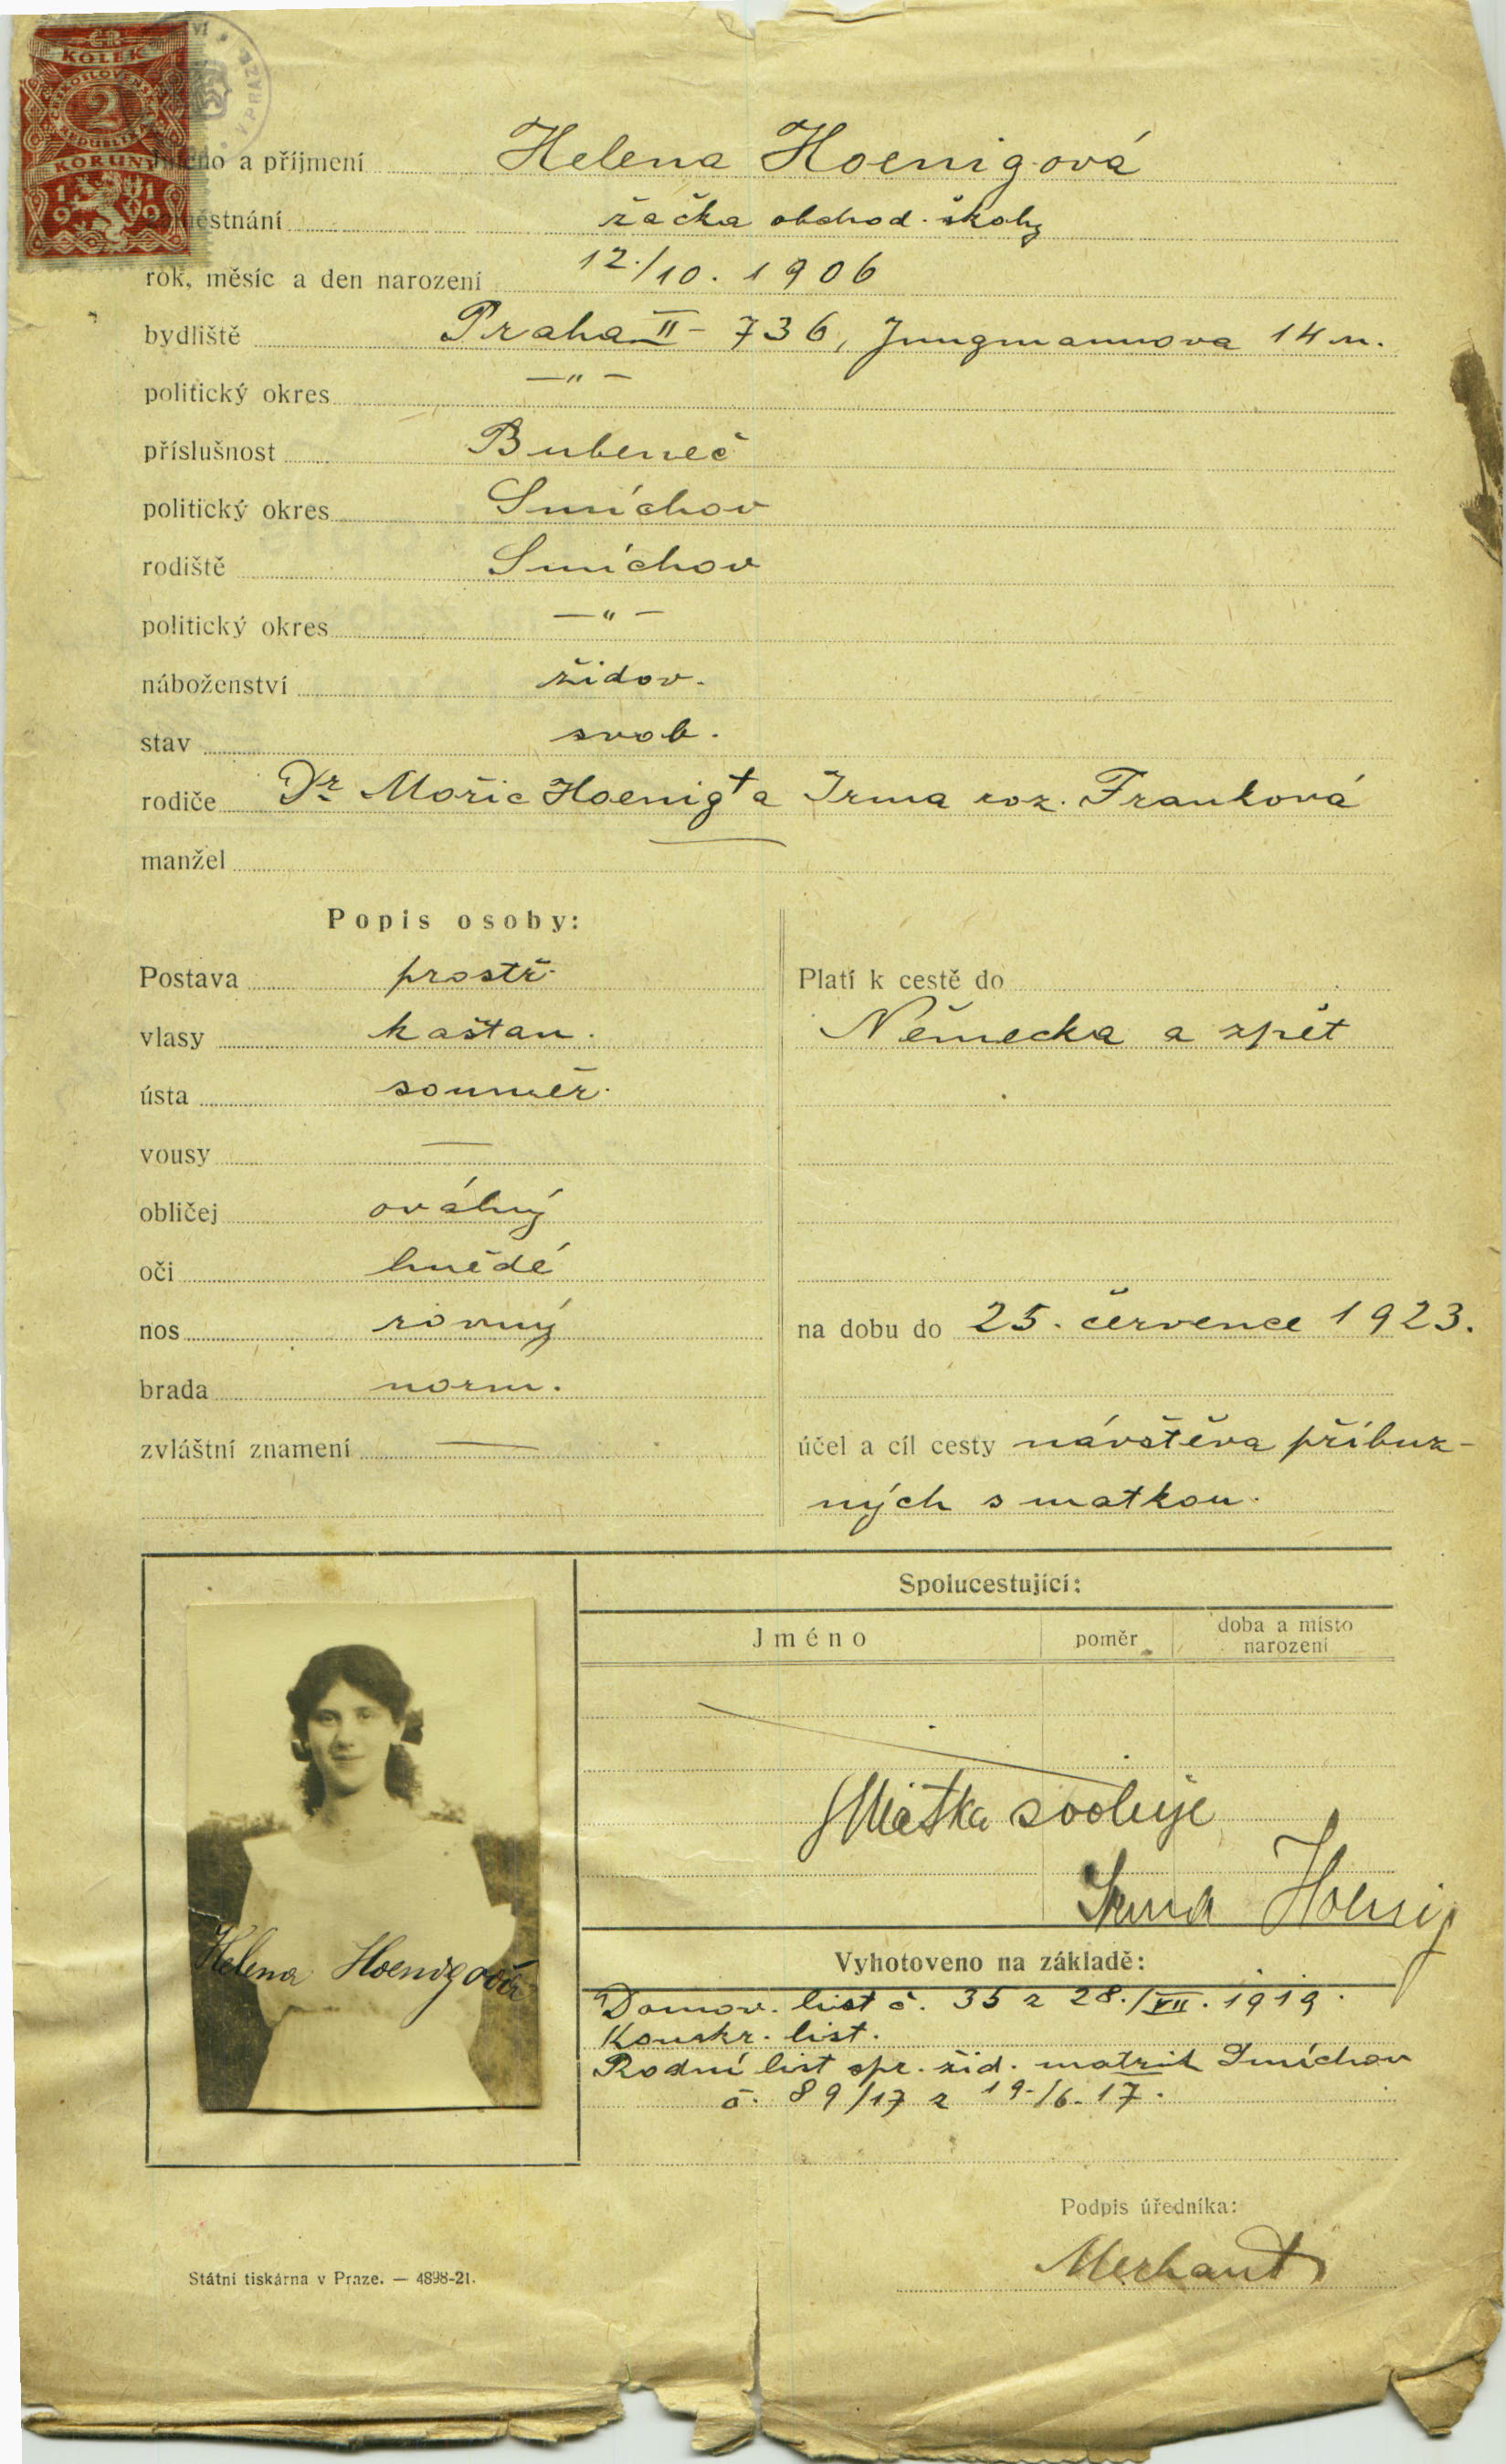 ČR
KOLEK
ČESKOSLOVENSKÉ
2
REPUBLIKY
KORUNY
19 19
V PRAZE
Jméno a příjmení Helena Hoenigová
zaměstnání žačka obchod. školy
rok, měsíc a den narození 12./10. 1906
bydliště Praha II – 736, Jungmannova 14 n.
politický okres —"—
příslušnost Bubeneč
politický okres Smíchov
rodiště Smíchov
politický okres —"—
náboženství židov.
stav svob.
rodiče Dr Mořic Hoenig † a Irma roz. Franková
manžel
Popis osoby:
Postava prostř.
vlasy kaštan.
ústa souměr.
vousy —
obličej oválný
oči hnědé
nos rovný
brada norm.
zvláštní znamení —
Platí k cestě do
Německa a zpět
na dobu do 25. července 1923.
účel a cíl cesty návštěva příbuz-
ných s matkou.
Spolucestující:
Jméno poměr doba a místo narození
Matka svoluje
Irma Hoenig
Helena Hoenigová
Vyhotoveno na základě:
Domov. list č. 35 z 28./VII. 1919.
Konskr. list.
Rodní list spr. žid. matrik Smíchov
č. 89/17 z 19./6. 17.
Podpis úředníka:
Státní tiskárna v Praze. — 4898-21.